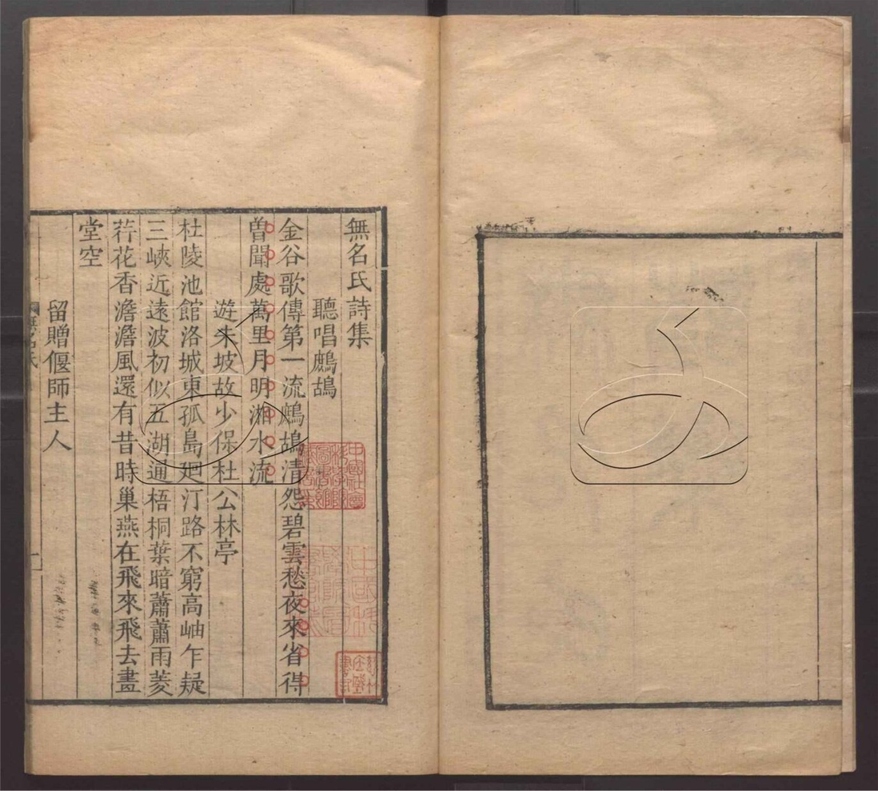 無名氏詩集
聽唱鷓鴣
金谷歌傳第一流鷓鴣清怨碧雲愁夜來省得
曽聞處萬里月明湘水流
遊朱坡故少保杜公林亭
杜陵池館洛城東孤島廻汀路不窮高岫乍疑
三峽近遠波初似五湖通梧桐葉暗蕭蕭雨菱
荇花香澹澹風還有昔時巢燕在飛來飛去畫
堂空
留贈偃師主人